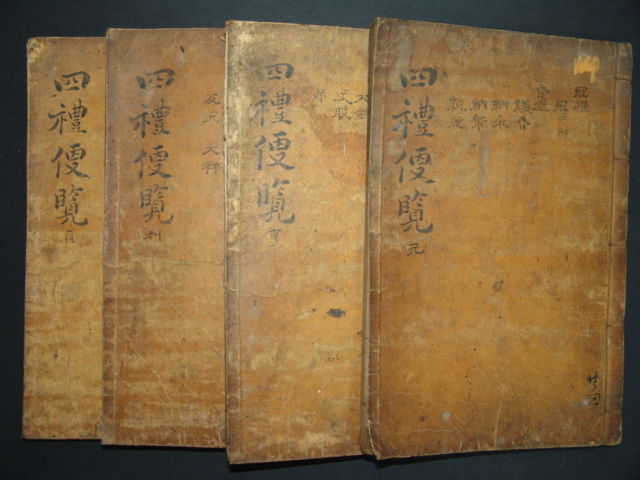 四禮便覽 元
冠禮
昏禮
議昏
納采
納幣
親迎
四禮便覽 亨
大斂
成服
吊
四禮便覽 利
反哭 大祥
四禮便覽 貞